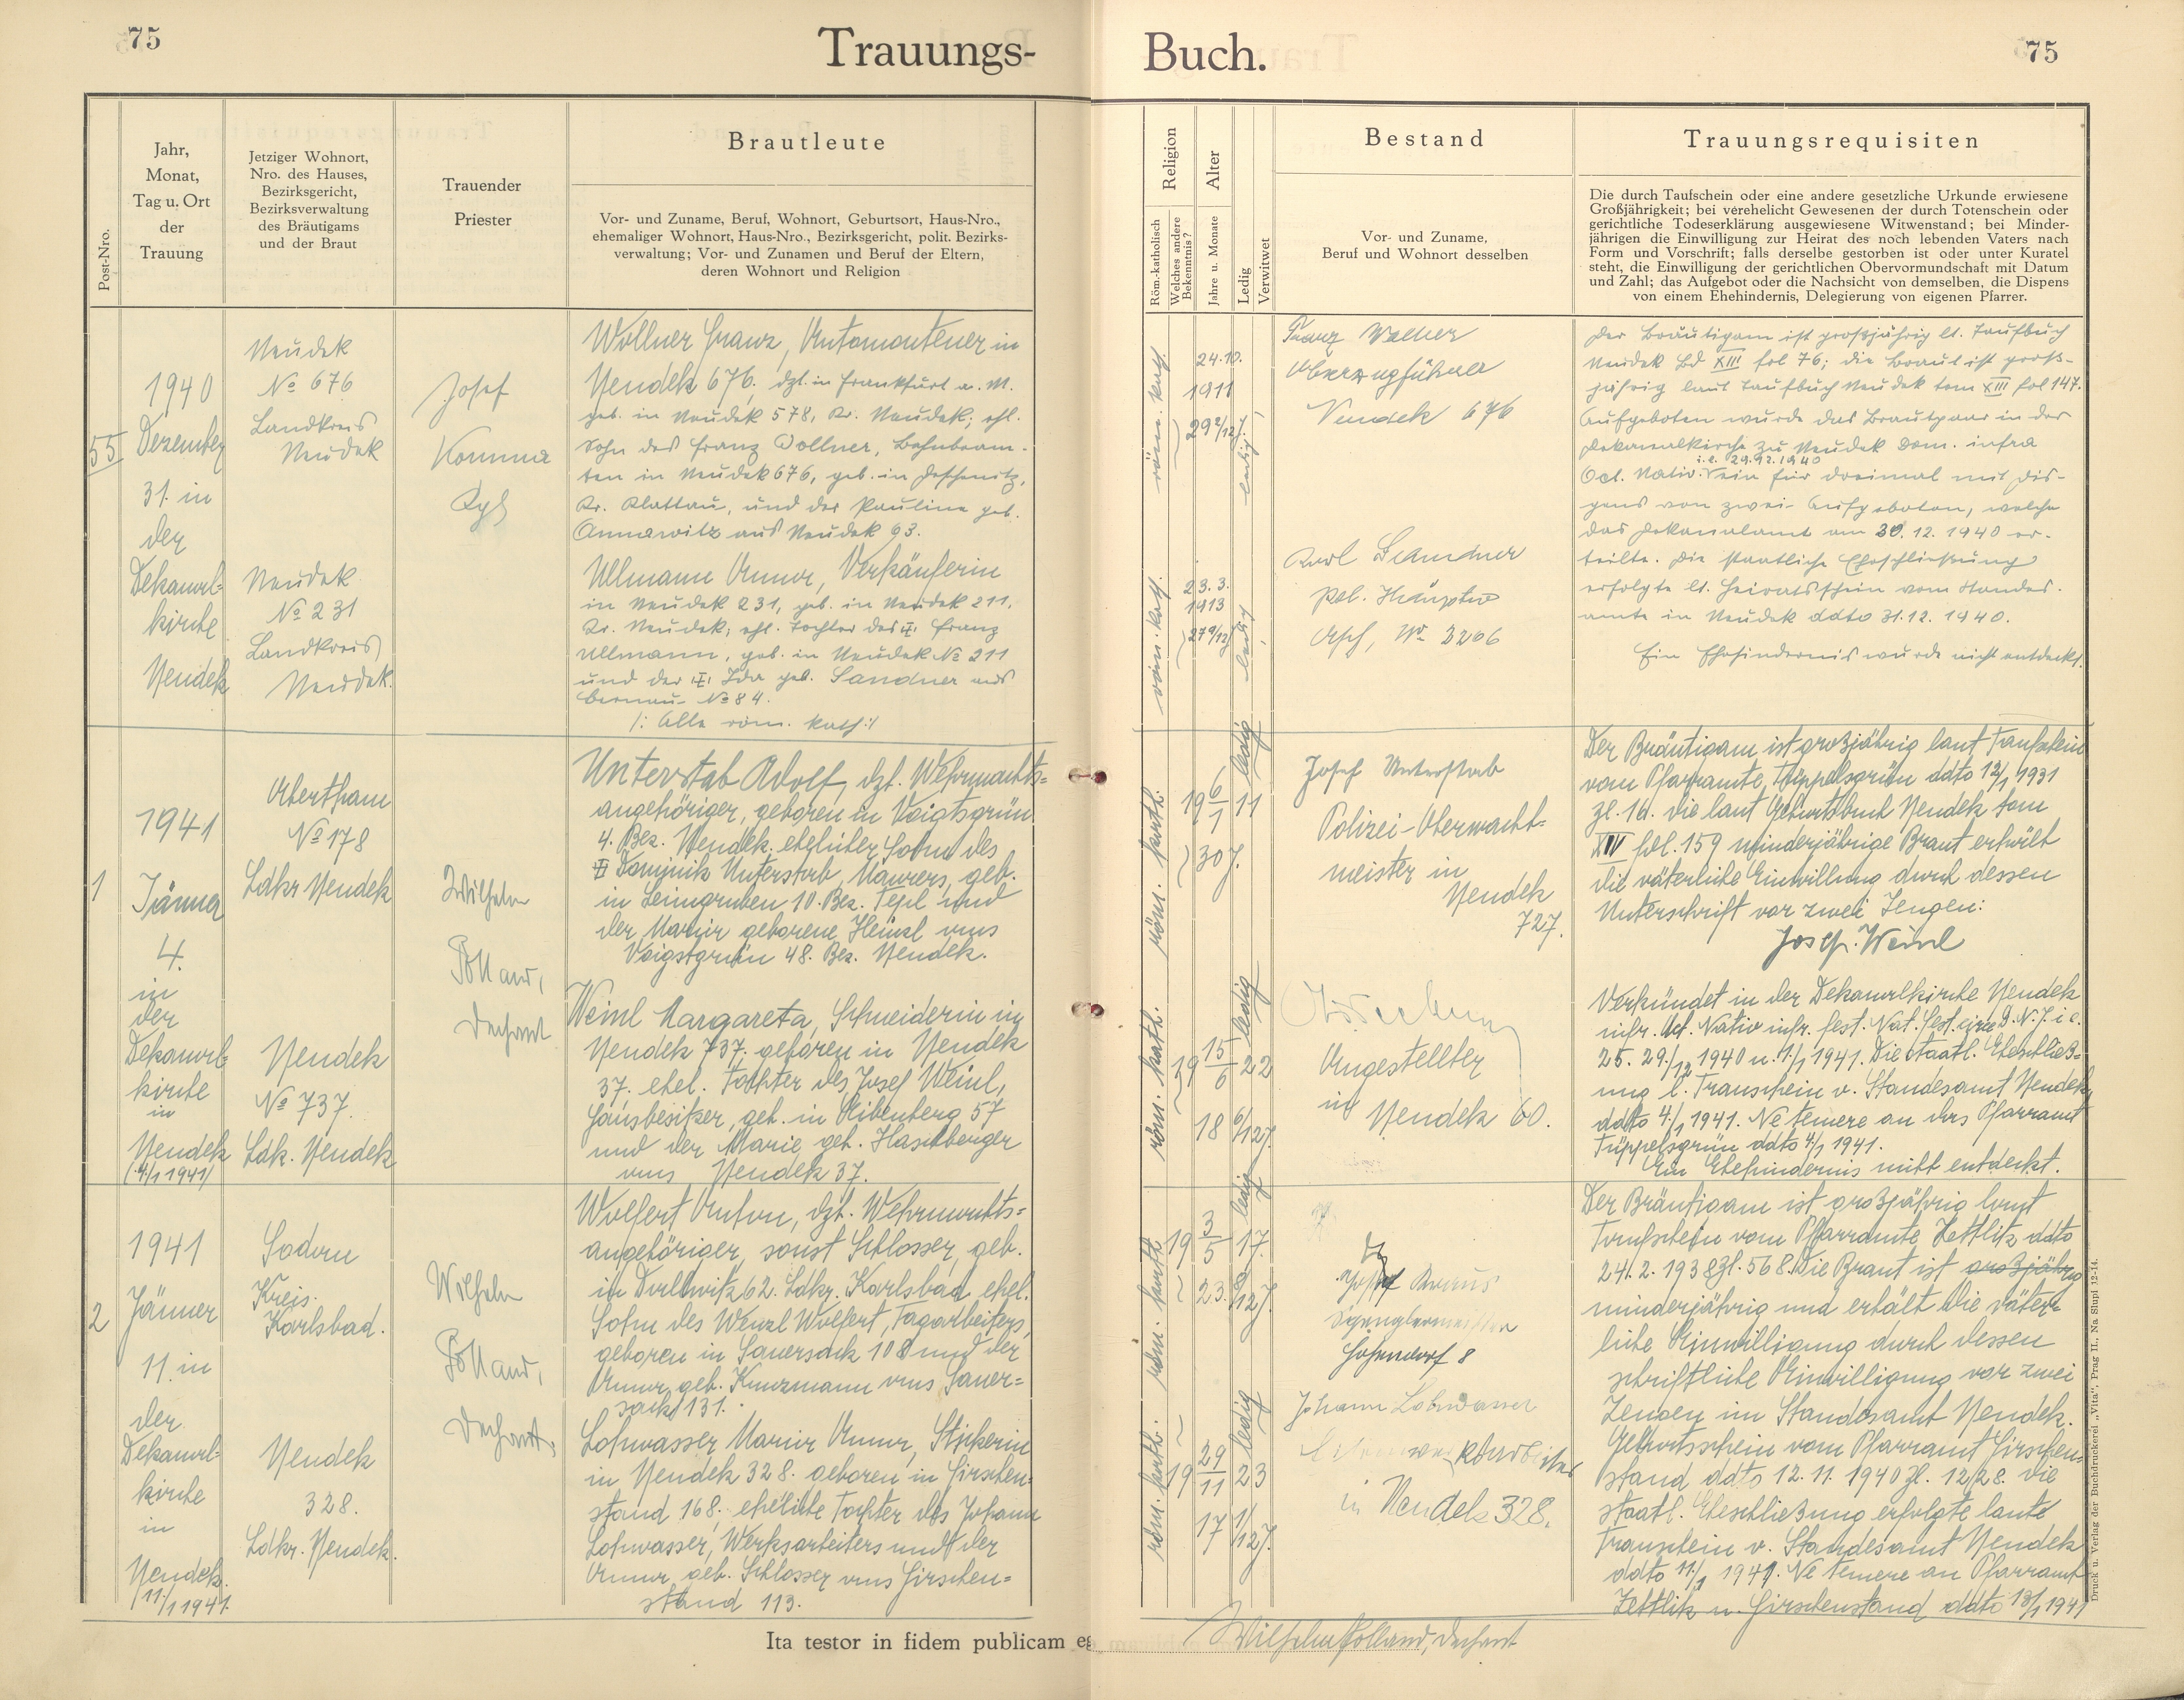 75
Trauungs-
Buch.
75
Post-Nro.
Jahr,
Monat,
Tag u. Ort
der
Trauung
Jetziger Wohnort,
Nro. des Hauses,
Bezirksgericht,
Bezirksverwaltung
des Bräutigams
und der Braut
Trauender
Priester
Brautleute
Vor- und Zuname, Beruf, Wohnort, Geburtsort, Haus-Nro.,
ehemaliger Wohnort, Haus-Nro., Bezirksgericht, polit. Bezirks-
verwaltung; Vor- und Zunamen und Beruf der Eltern,
deren Wohnort und Religion
Religion
Röm.-katholisch
Welches andere
Bekenntnis?
Alter
Jahre u. Monate
Ledig
Verwitwet
Bestand
Vor- und Zuname,
Beruf und Wohnort desselben
Trauungsrequisiten
Die durch Taufschein oder eine andere gesetzliche Urkunde erwiesene
Großjährigkeit; bei verehelicht Gewesenen der durch Totenschein oder
gerichtliche Todeserklärung ausgewiesene Witwenstand; bei Minder-
jährigen die Einwilligung zur Heirat des noch lebenden Vaters nach
Form und Vorschrift; falls derselbe gestorben ist oder unter Kuratel
steht, die Einwilligung der gerichtlichen Obervormundschaft mit Datum
und Zahl; das Aufgebot oder die Nachsicht von demselben, die Dispens
von einem Ehehindernis, Delegierung von eigenen Pfarrer.
55
1940
Dezember
31. in
der
Dekanal-
kirche
Neudek
Neudek
No 676
Landkreis
Neudek
Neudek
No 231
Landkreis
Neudek.
Josef
Komma
Wollner Franz, Automonteuer in
Neudek 676, dzt. in Frankfurt a. M.
geb. in Neudek 578, Kr. Neudek; ehl.
Sohn des Franz Wollner, Bahnbeam-
ten in Neudek 676, geb. in Jeschenitz,
Kr. Klattau, und der Pauline geb.
aus Neudek 93.
Ullmann Anna, Verkäuferin
in Neudek 231, geb. in Neudek 211,
Kr. Neudek; ehl. Tochter des Franz
Ullmann, geb. in Neudek No 211
und der Ida geb. Sandner aus
Bernau No 84.
/: Alle röm. kath :/
röm. kath.
24.10.
1911
29 2/12 J.
ledig
röm. kath.
23. 3.
1913
27 9/12 J
ledig
Franz Wollner
Oberzugführer
Neudek 676
Karl Sandner
Pol. Hauptw
Asch, No 2206
Der Bräutigam ist großjährig lt. Taufbuch
Neudek Bd XIII fol 76; die Braut ist groß-
jährig laut Taufbuch Neudek tom XIII fol 147.
Aufgeboten wurde das Brautpaar in der
Dekanalkirche zu Neudek Dom. infra
i.e. 29.12.1940
Oct. Nativ. ein für dreimal mit Dis-
pens von zwei Aufgeboten, welche
das Dekanalamt am 30. 12. 1940 er-
teilte. Die staatliche Eheschließung
erfolgte lt. Heiratsschein vom Standes-
amte in Neudek ddto 31.12.1940.
Ein Ehehindernis wurde nicht entdeckt.
1
1941
Jänner
4.
in
der
Dekanal-
kirche
in
Neudek
(4/1 1941)
Abertham
No 178
Ldkr Neudek
Neudek
No 737.
Ldk. Neudek
Wilhelm
Pölland,
Dechant
Unterstab Adolf, dzt. Wehrmachts-
angehöriger, geboren in Voigtsgrün
4. Bez. Neudek. ehelicher Sohn des
Dominik Unterstab, Maurers, geb.
in Leimgruben 10. Bez. Tepl und
der Maria geborene Heinzl aus
Voigtsgrün 48. Bez. Neudek.
Weinl Margareta, Schneiderin in
Neudek 737. geboren in Neudek
37. ehel. Tochter des Josef Weinl,
Hausbesitzer, geb. in Eibenberg 57
und der Marie geb. Haschberger
aus Neudek 37.
röm. kath.
19 6/1 11
30 J.
ledig
röm. kath.
19 15/6 22
18 6/12 J.
ledig
Josef Unterstab
Polizei-Oberwacht-
meister in
Neudek
727.
Angestellter
in Neudek 60.
Der Bräutigam ist großjährig laut Taufschein
vom Pfarramte Tüppelsgrün ddto 12/1 1931
Zl. 16. Die laut Geburtsbuch Neudek tom
XIV fol. 159 minderjährige Braut erhält
die väterliche Einwillung durch dessen
Unterschrift vor zwei Zeugen:
Josef Weinl
Verkündet in der Dekanalkirche Neudek
infr. Oct. Nativ infr. fest. Nat. fest. circ. D. N. J. i e.
25. 29./12 1940 u. 1./1 1941. Die staatl. Eheschließ-
ung l. Trauschein v. Standesamt Neudek
ddto 4/1 1941. Ne temere an das Pfarramt
Tüppelsgrün ddto 4/1 1941.
Ein Ehehindernis nicht entdeckt.
2
1941
Jänner
11. in
der
Dekanal-
kirche
in
Neudek.
(11/1 1941.
Sodau
Kreis.
Karlsbad.
Neudek
328.
Ldkr. Neudek.
Wilhelm
Pölland,
Dechant,
Wolfert Anton, dzt. Wehrmachts-
angehöriger, sonst Schlosser, geb.
in Dallwitz 62. Ldkr. Karlsbad ehel.
Sohn des Wenzl Wolfert, Tagarbeiters,
geboren in Sauersack 108 und der
Anna geb. Kunzmann aus Sauer-
sack 131.
Lohwasser Maria Anna, Stickerin
in Neudek 328. geboren in Hirschen-
stand 168. eheliche Tochter des Johann
Lohwasser, Werksarbeiters und der
Anna geb. Schlosser aus Hirschen-
stand 113.
röm. kath.
19 3/5 17.
23 8/12 J.
ledig
röm. kath.
19 29/11 23
17 1/12 J.
ledig
Josef Kraus
Spenglermeister
Höhendorf 8
Johann Lohwasser
in Neudek 328.
Der Bräutigam ist großjährig laut
Taufschein vom Pfarramte Zettlitz ddto
24. 2. 1938 Zl. 568. Die Braut ist großjährig
minderjährig und erhält die väter-
liche Einwilligung durch dessen
schriftliche Einwilligung vor zwei
Zeugen im Standesamt Neudek.
Geburtsschein vom Pfarramt Hirschen-
stand ddto 12. 11. 1940 Zl. 12/28. Die
staatl. Eheschließung erfolgte laut
Trauschein v. Standesamt Neudek
ddto 11/1 1941. Ne temere an Pfarramt
Zettlitz u. Hirschenstand ddto 13/1 1941
Ita testor in fidem publicam eg
Wilhelm Pölland, Dechant
Druck u. Verlag der Buchdruckerei „Vita“, Prag II., Na Slupi 12-14.